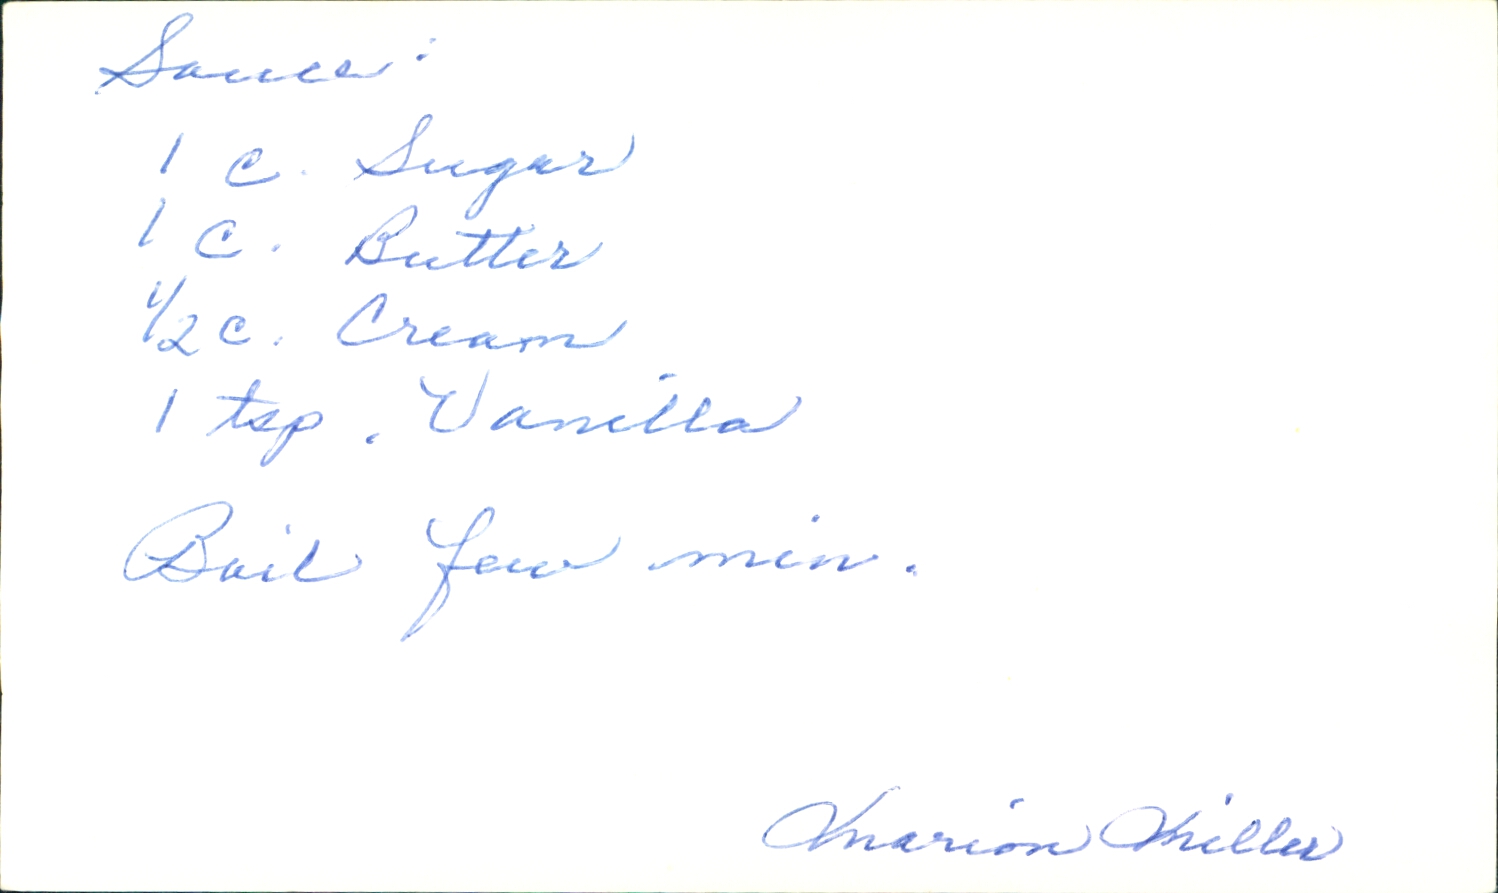 Sauce:
1 c. Sugar
1 c. Butter
1/2 c. Cream
1 tsp. Vanilla
Boil few min.
Marion Miller